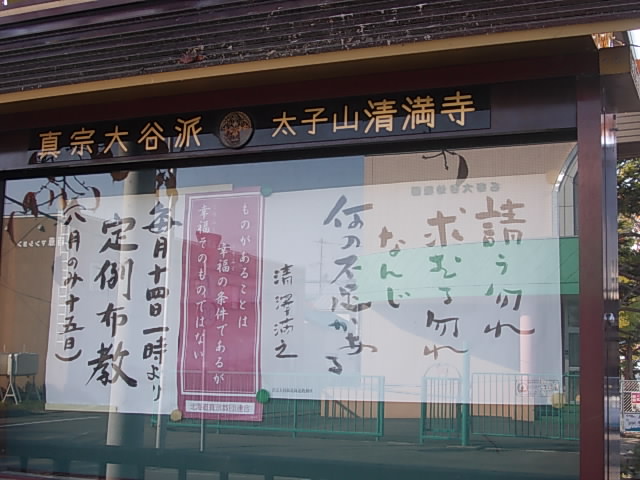 真宗大谷派 太子山清満寺
請う勿れ
求むる勿れ
なんじ
何の不足かある
清澤満之
ものがあることは
幸福の条件であるが
幸福そのものではない
毎月十四日一時より
定例布教
(六月のみ十五日)